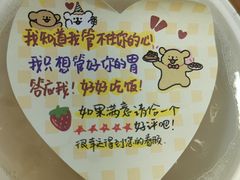 我知道我管不住你的心
我只想管好你的胃
答应我！好好吃饭！
如果满意请给一个
☆☆☆☆☆好评吧！
很幸运得到您的看顾